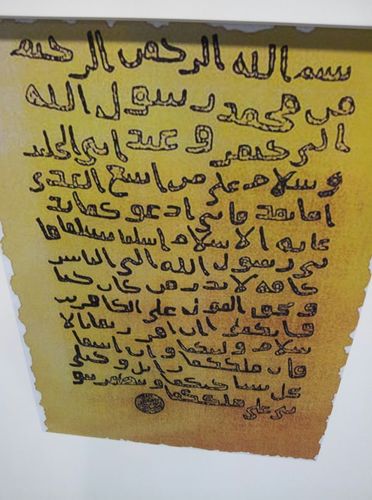 بسم الله الرحمن الرحيم
من محمد رسول الله
الى جيفر وعبد ابني الجلند
وسلام على من اتبع الهدى
اما بعد فاني ادعوكما بد
عايه الاسلام اسلما تسلما فا
ني رسول الله الى الناس
كافه لانذر من كان حيا
ويحق القول على الكافرين
وانكما ان اقررتما بالا
سلام وليتكما وان ابيتما
فان ملككما زايل وخيلي
تحل بساحتكما وتظهر نبو
تي على ملككما